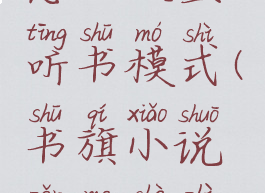 tīng shū mó shì
听书模式(
shū qí xiǎo shuō
书旗小说